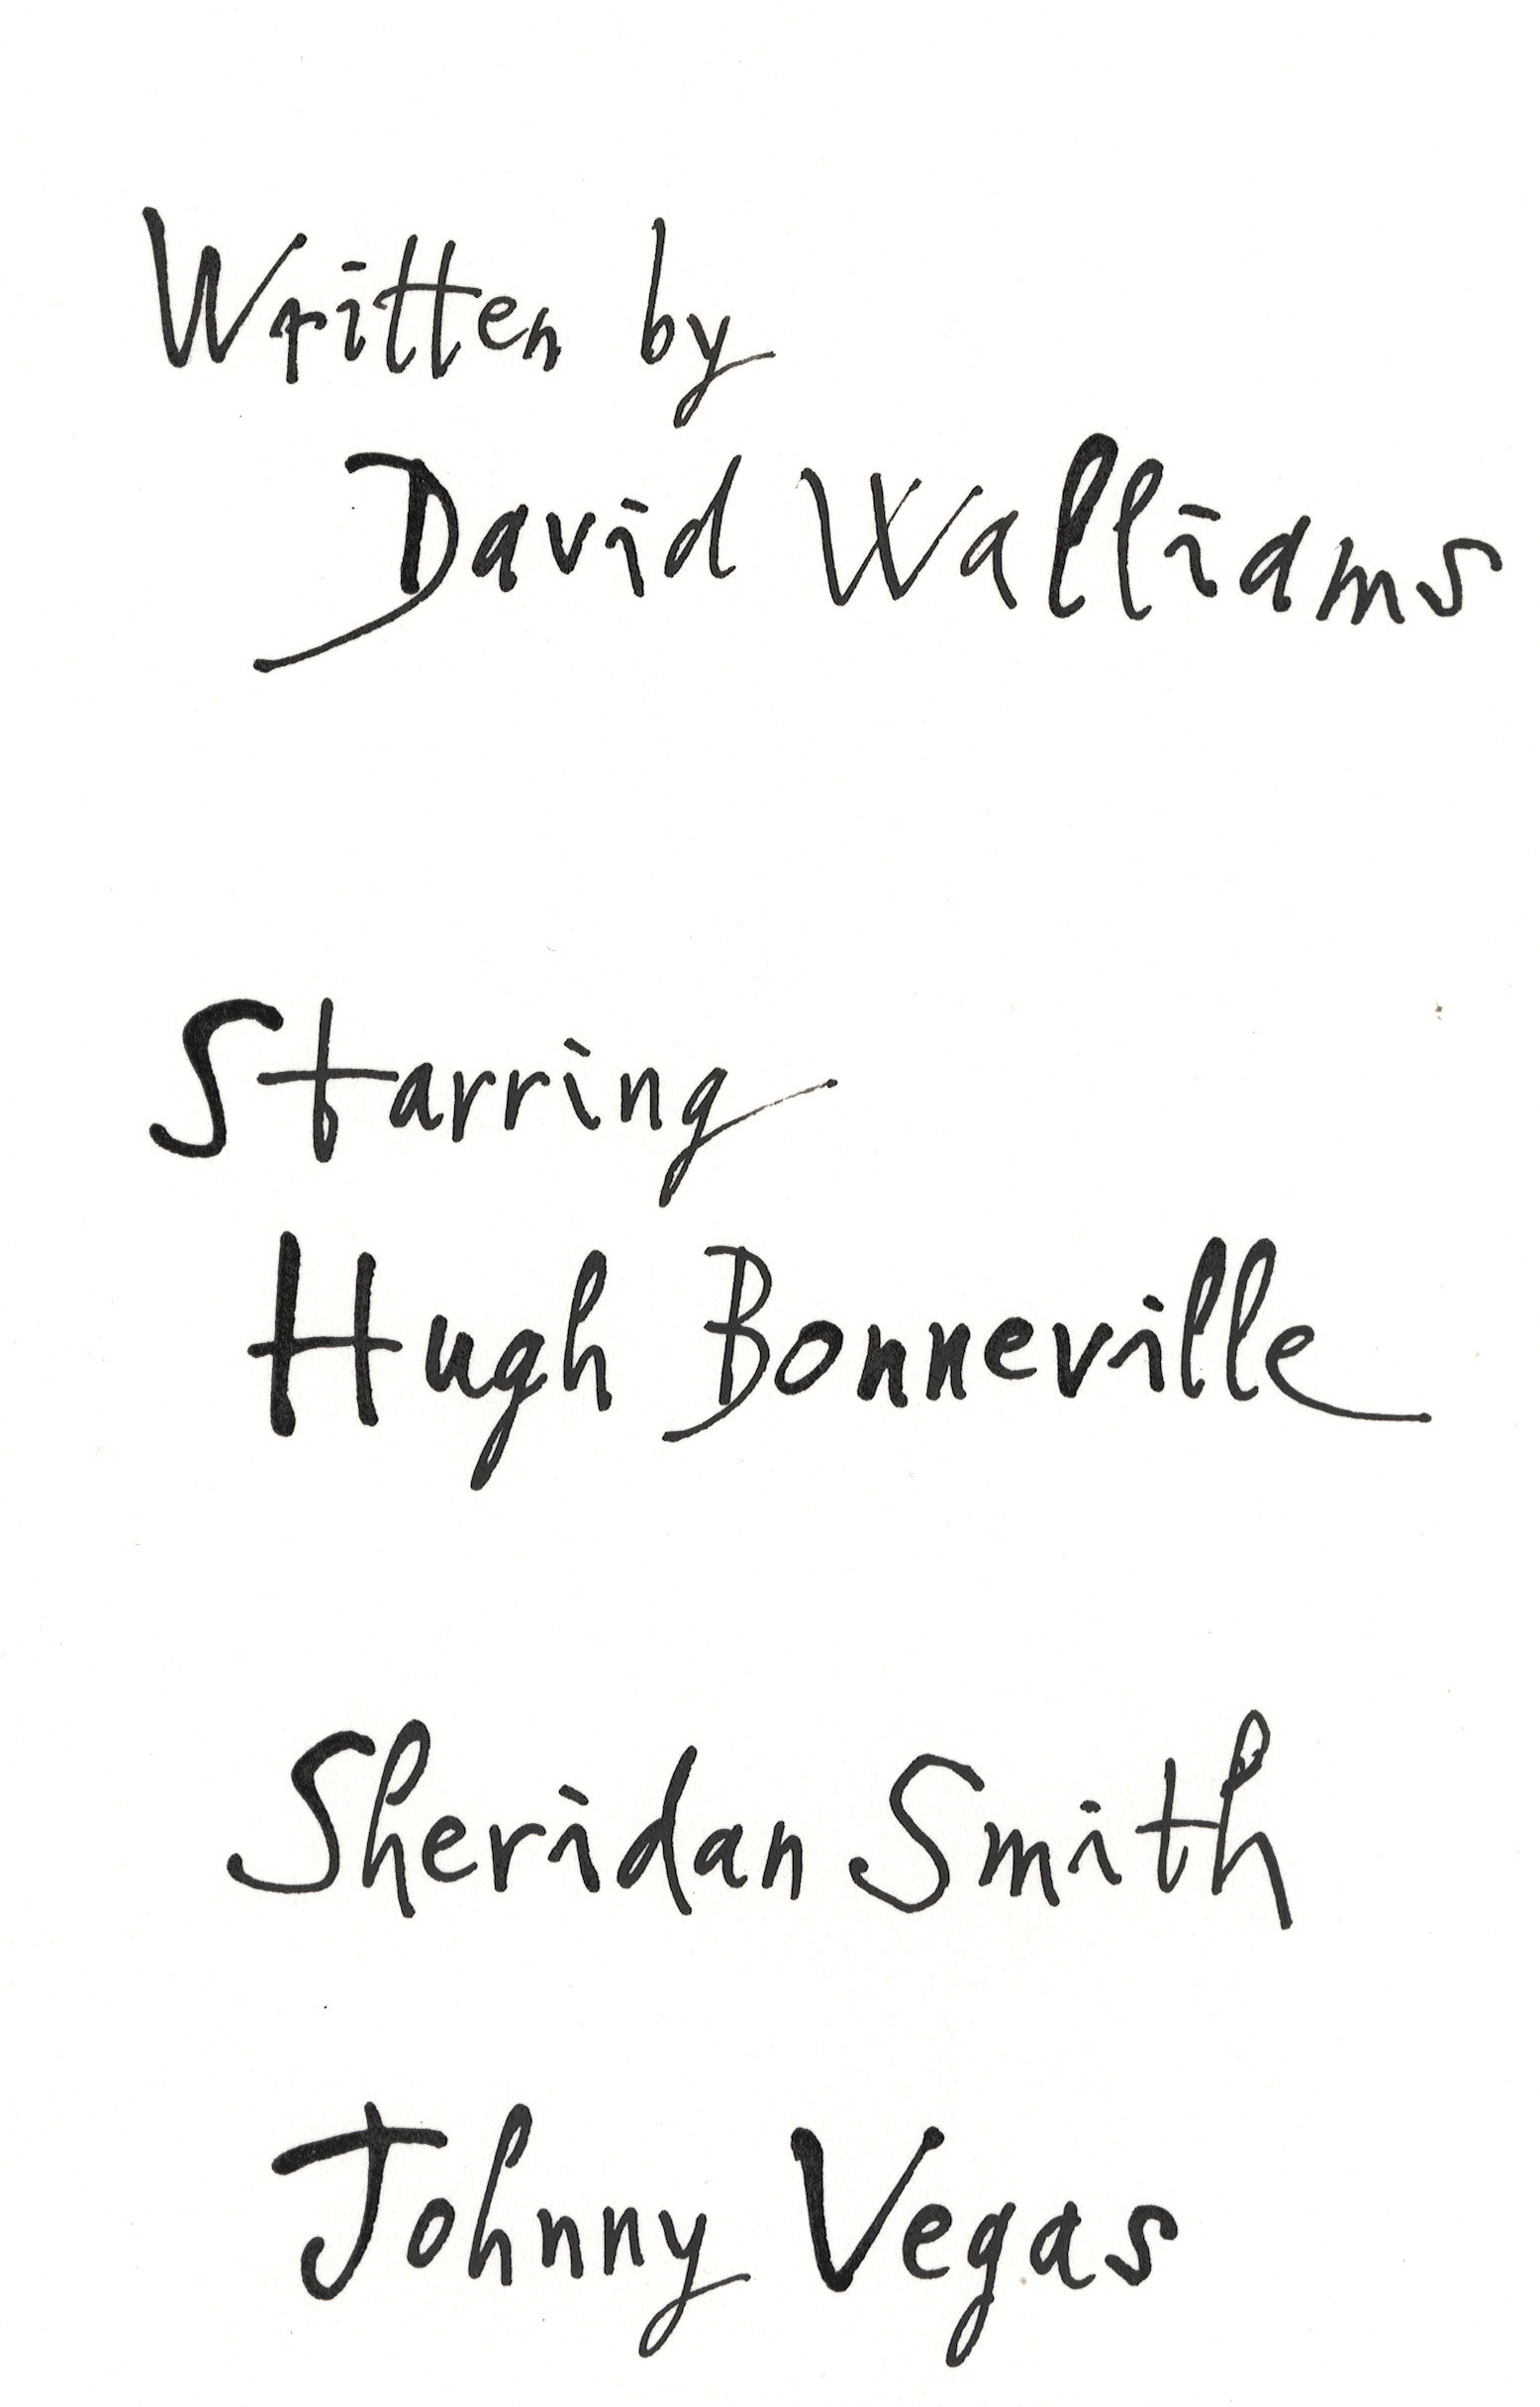 Written by
David Walliams
Starring
Hugh Bonneville
Sheridan Smith
Johnny Vegas